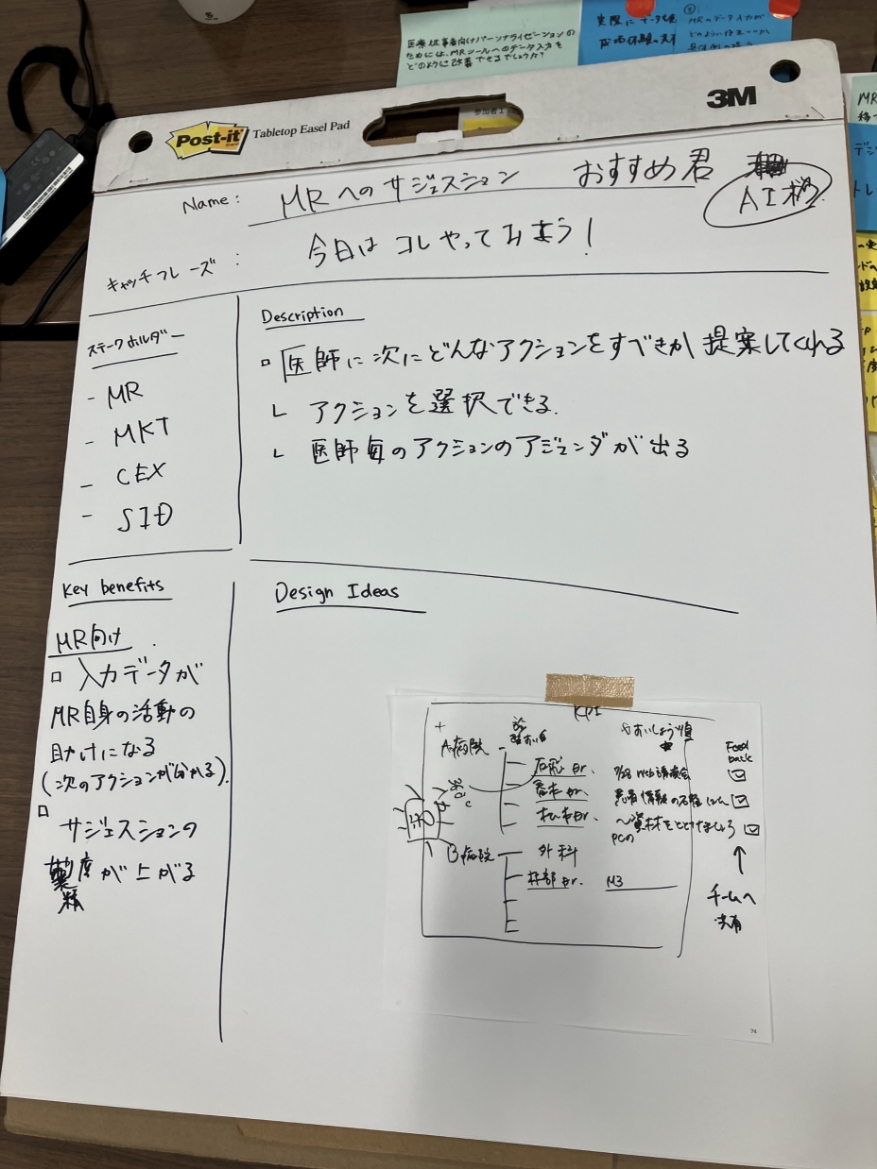 医療従事者向けパーソナライゼーションの
ためには、MRツールへのデータ入力を
どのように改善できるでしょうか?
実際に
MRのデータ入力が
Post-it Tabletop Easel Pad
3M
Name: MRへのサジェスション おすすめ君
AI
キャッチフレーズ: 今日はコレやっておまう!
ステークホルダー
- MR
- MKT
- CEX
- SID
Description
医師に次にどんなアクションをすべきか提案してくれる
└ アクションを選択できる.
└ 医師毎のアクションのアジェンダが出る
Key benefits
MR向け.
入力データが
MR自身の活動の
助けになる
(次のアクションが分かる).
サジェスションの
精度が上がる
Design Ideas
KPI
A病院
Feed
back
Web講演会
松本Dr.
B病院 外科
M3
チームへ
共有